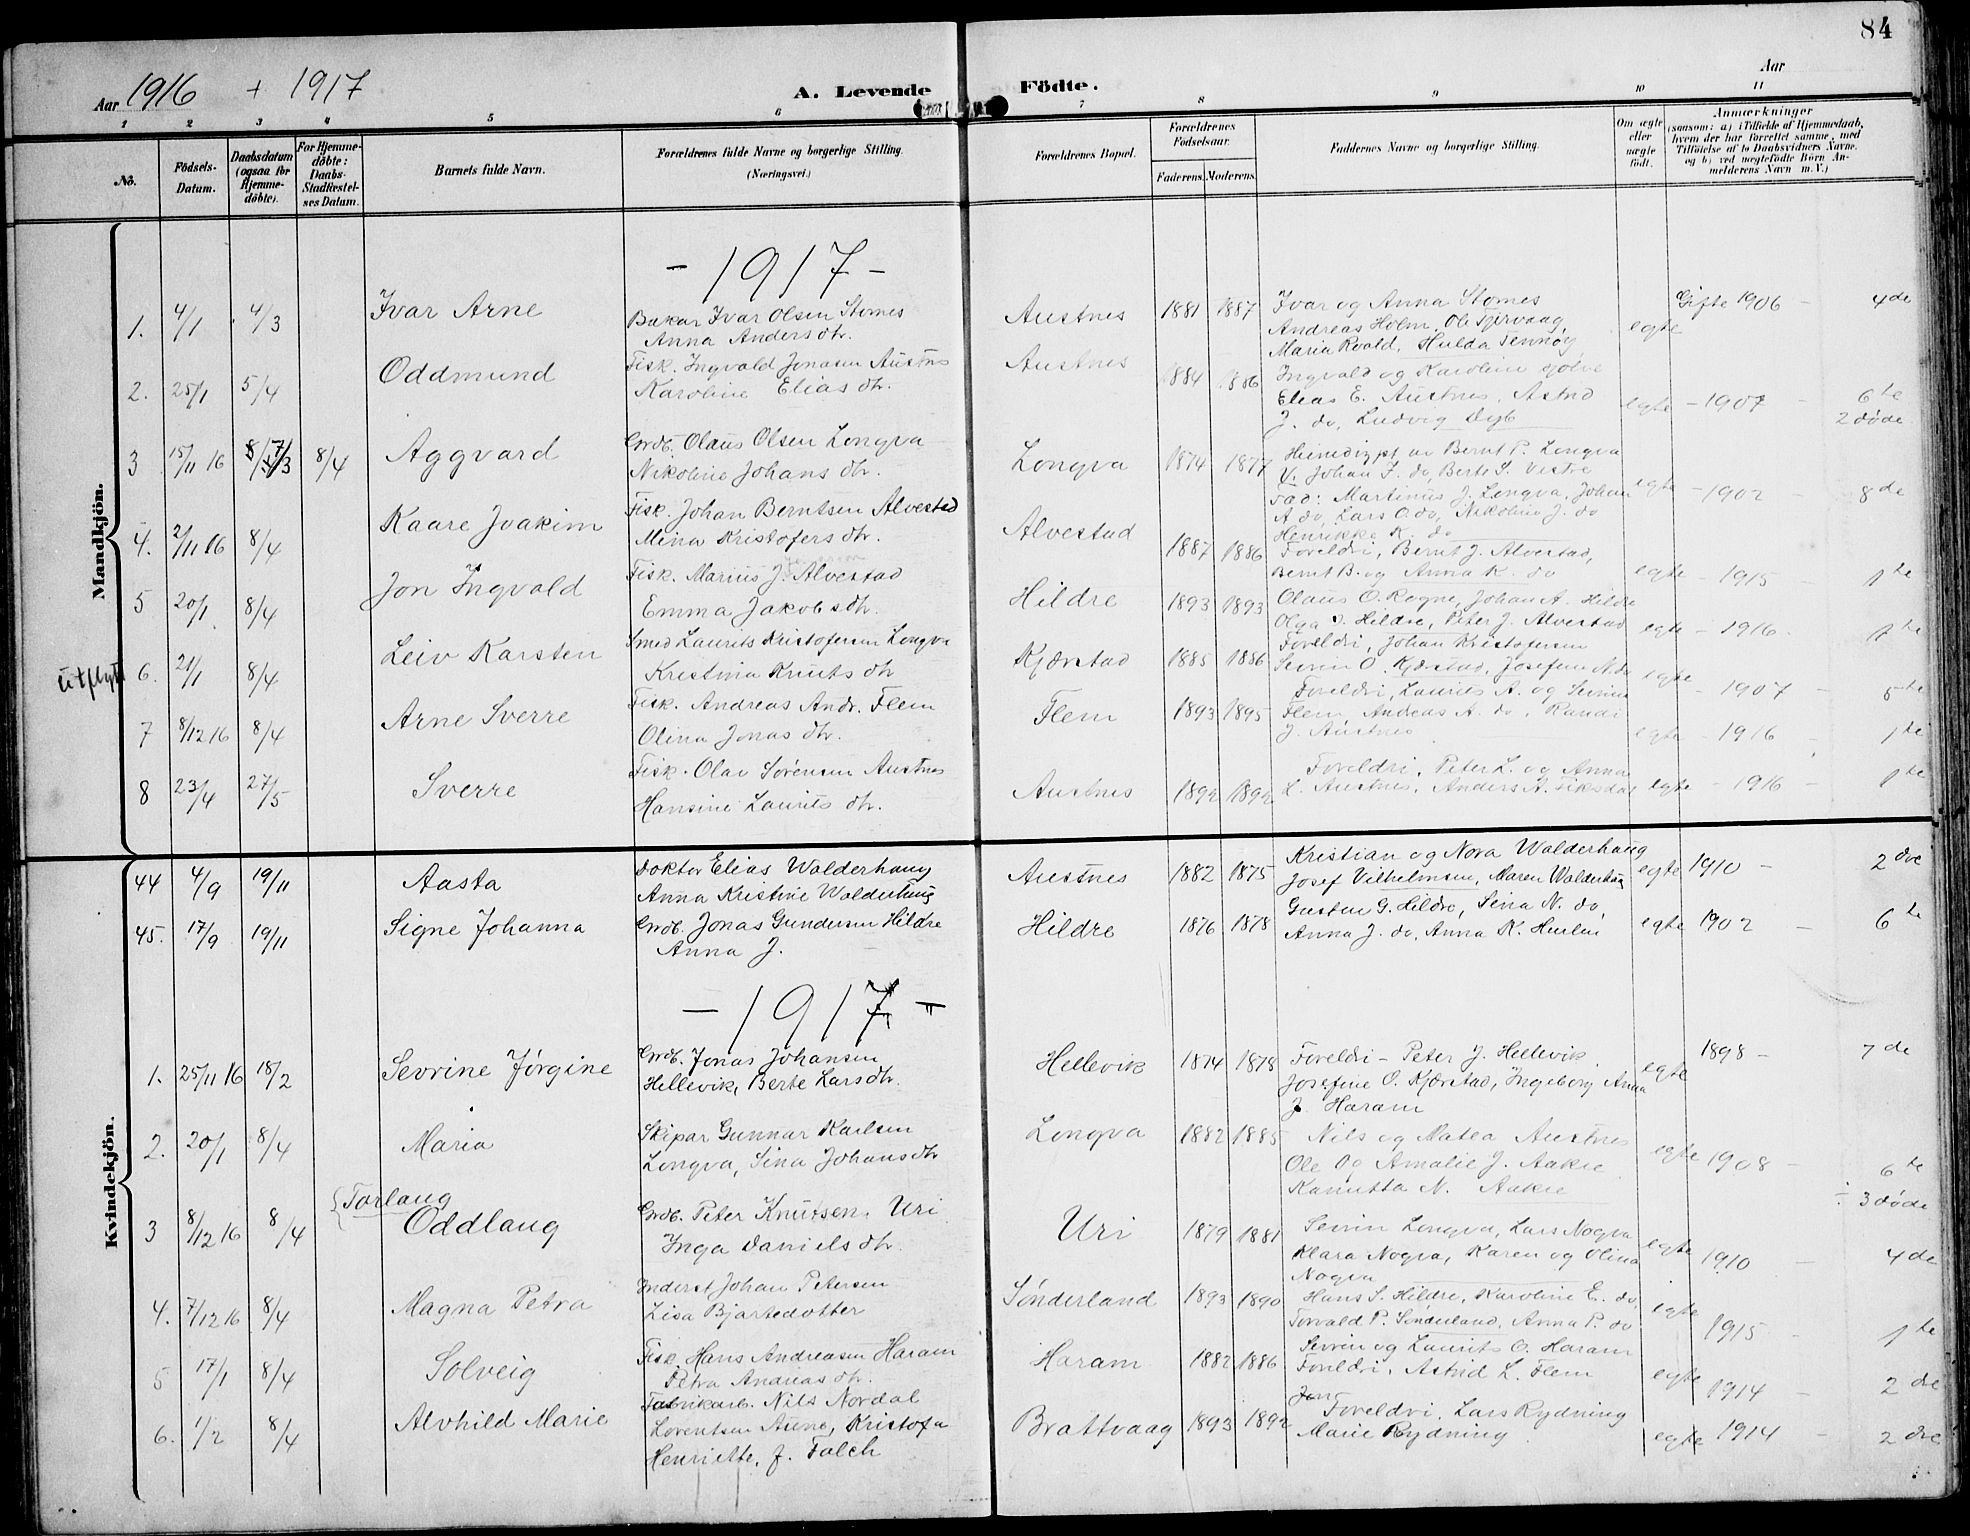 84
Aar 1916 + 1917
A. Levende Födte.
Aar
1 2 3 4 5 6 7 8 9 10 11
No.
Födsels-Datum.
Daabsdatum (ogsaa for Hjemme-döbte).
For Hjemme-döbte: Daabs-Stadfæstel-ses Datum.
Barnets fulde Navn.
Forældrenes fulde Navne og borgerlige Stilling.
(Næringsvei.)
Forældrenes Bopæl.
Forældrenes Födselsaar.
Faderens. Moderens.
Faddernes Navne og borgerlige Stilling.
Om ægte eller uægte födt.
Anmærkninger
(saasom: a) i Tilfælde af Hjemmedaab, hvem der har forrettet samme, med Tilföielse af to Daabsvidners Navne, og b) ved uægtefödte Börn An-melderens Navn m. V.)
Mandkjön.
- 1917 -
1. 4/1 4/3 Ivar Arne Bakar Ivar Olsen Stornes Austnes 1881 1887 Ivar og Anna Stornes Gifte 1906 - 4de
Anna Anders dtr. Andreas Holm, Ole egte
Maria Roald, Hulda Tennøy
2. 25/1 5/4 Oddmund Fisk. Ingvald Jonasen Austnes Austnes 1884 1886 Ingvald og Karoline sjølve
Karoline Elias dtr. Elias E. Austnes, Astrid egte - 1907 - 6te
J. do, Ludvig Dyb 2 døde
3 15/11 16 8/4 Aggvard Grdb. Olaus Olsen Longva Longva 1874 1877 Hiemedøpt av Bernt P. Longva
Nikoline Johans dtr. V. Johan J. do, Berte S. Vestre egte - 1902 - 8de
Fad: Martinus J. Longva, Johan
A do, Lars O. do, Nikoline J. do
Henrikke K. do
4. 2/11 16 8/4 Kaare Joakim Fisk. Johan Berntsen Alvestad Alvestad 1887 1886 Foreldri, Bernt J. Alvestad,
Mina Kristofers dtr. Bernt B. og Anna K. do egte - 1915 - 1te
5 20/1 8/4 Jon Ingvald Fisk. Marius J. Alvestad Hildre 1893 1893 Olaus O. Rogne, Johan A. Hildre
Emma Jakobs dtr. Olga O. Hildre, Peter J. Alvestad egte - 1916 1te
utflyt 6. 21/1 8/4 Leiv Karsten Smed Laurits Kristofersen Longva Kjærstad 1885 1886 Foreldri, Johan Kristofersen
Kristina Knuts dtr Sevrin O. Kjærstad, Josefine N. do egte - 1907 - 5te
7 8/12 16 8/4 Arne Sverre Fisk. Andreas Andr. Flem Flem 1893 1895 Foreldri, Laurits A. og Sevrine
Olina Jonas dtr. Flem, Andreas A. do, Randi
J. Austnes egte - 1916 1te
8 23/4 27/5 Sverre Fisk. Olav Sørensen Austnes Austnes 1892 1892 Foreldri, Peter L. og Anna
Hansine Laurits dtr. L. Austnes, Anders A. egte - 1916 - 1te
Kvindekjön.
44 4/9 19/11 Aasta Doktor Elias Walderhaug Austnes 1882 1875 Kristian og Nora Walderhaug egte 1910 - 2dre
Anna Kristine Walderhaug Josef Vilhelmsen, Maren Walderhaug
45. 17/9 19/11 Signe Johanna Grdb. Jonas Gundersen Hildre Hildre 1876 1878 Gusten G. Hildre, Sina N. do, egte 1902 - 6te
Anna J. Anna J. do, Anna K.
- 1917 -
1. 25/11 16 18/2 Sevrine Jørgine Grdb. Jonas Johansen Hellevik 1874 1878 Foreldri - Peter J. Hellevik egte 1898 - 7de
Hellevik, Berte Lars dtr. Josefine O. Kjærstad, Ingeborg Anna
J. Haram
2. 20/1 8/4 Maria Skipar Gunnar Karlsen Longva 1882 1885 Nils og Matea Austnes egte 1908 - 6te
Longva, Sina Johans dtr Ole og Amalie J. Aakre ÷ 3 døde
N. Aakre
3 8/12 16 8/4 {Torlaug
Oddlaug Grdb. Peter Knutsen Uri Uri 1879 1881 Sevrin Longva, Lars Nogva egte 1910 - 4de
Inga Daniels dtr. Klara Nogva, Karen og Olina
Nogva
4. 7/12 16 8/4 Magna Petra Inderst Johan Petersen Sønderland 1893 1890 Hans S. Hildre, Karoline E. do, egte 1915 - 1te
Lisa Bjartedotter Torvald P. Sønderland, Anna P. do
5 17/1 8/4 Solveig Fisk. Hans Andreasen Haram Haram 1882 1886 Sevrin og Laurits O. Haram egte 1914 - 2dre
Petra Andreas dtr. Foreldri, Astrid L. Flem
6. 1/2 8/4 Alvhild Marie Fabrikarb. Nils Nordal Brattvaag 1893 1892 Foreldri, Lars Rydning egte 1914 - 2dre
Lorentsen Aune, Kristofa Marie Rydning
Henriette, f. Falch